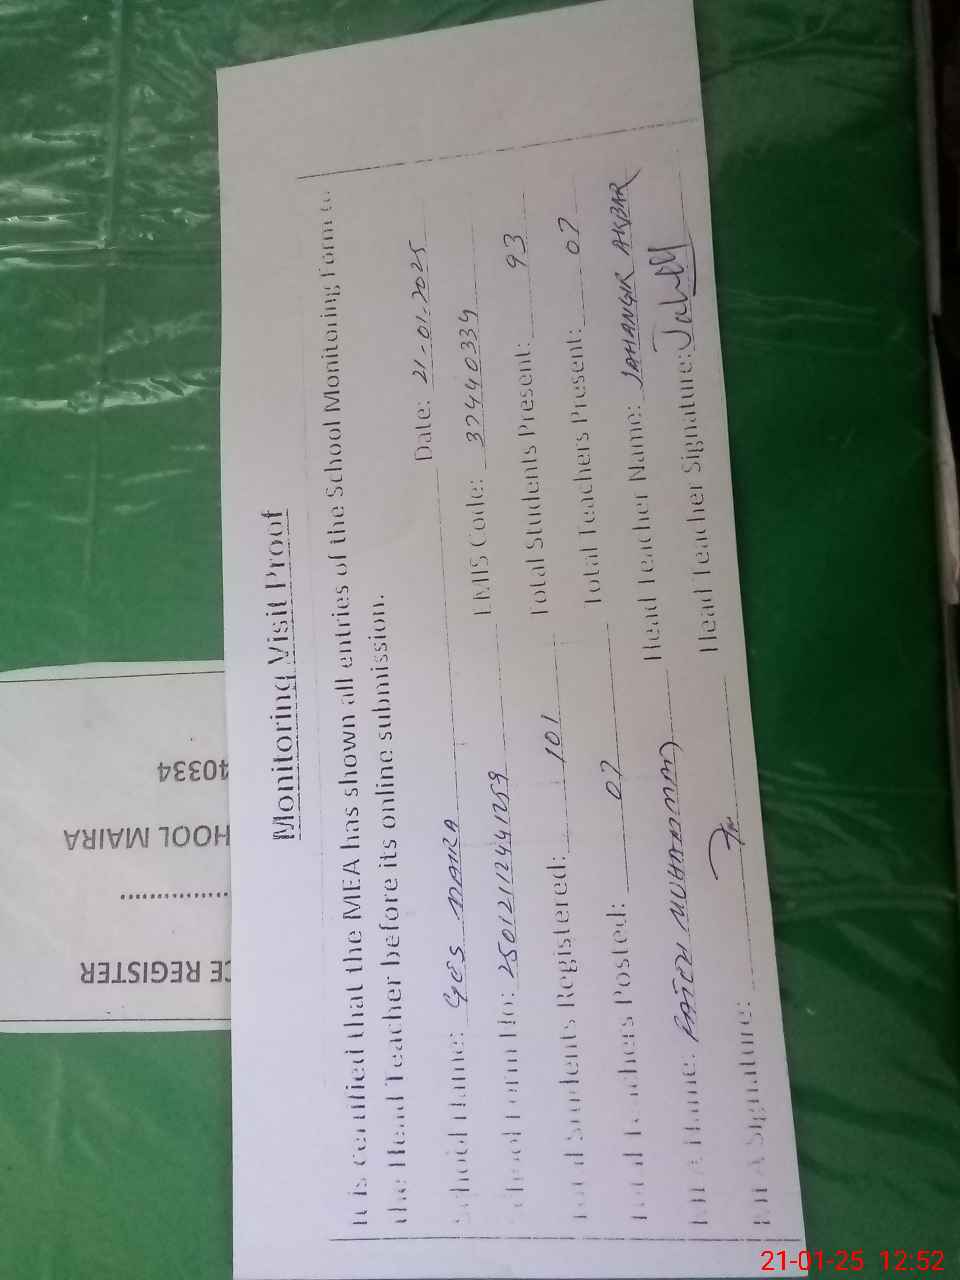 Monitoring Visit Proof
It is certified that the MEA has shown all entries of the School Monitoring Form to
the Head Teacher before its online submission.
School Name: GES MAIRA Date: 21-01-2025
School Form No: 25012112441259 EMIS Code: 37440334
Total Students Registered: 101 Total Students Present: 93
Total Teachers Posted: 07 Total Teachers Present: 07
MEA Name: FATEH MUHAMMAD Head Teacher Name: JAHANGIR AKBAR
MEA Signature: Head Teacher Signature:
40334
HOOL MAIRA
CE REGISTER
21-01-25 12:52